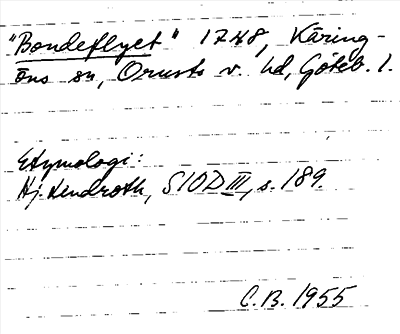 "Bondeflyet" 1748, Käring-
öns sn, Orusts v. hd, Göteb. l.
Etymologi:
Hj. Lindroth, SIOD III, s. 189.
C.B. 1955